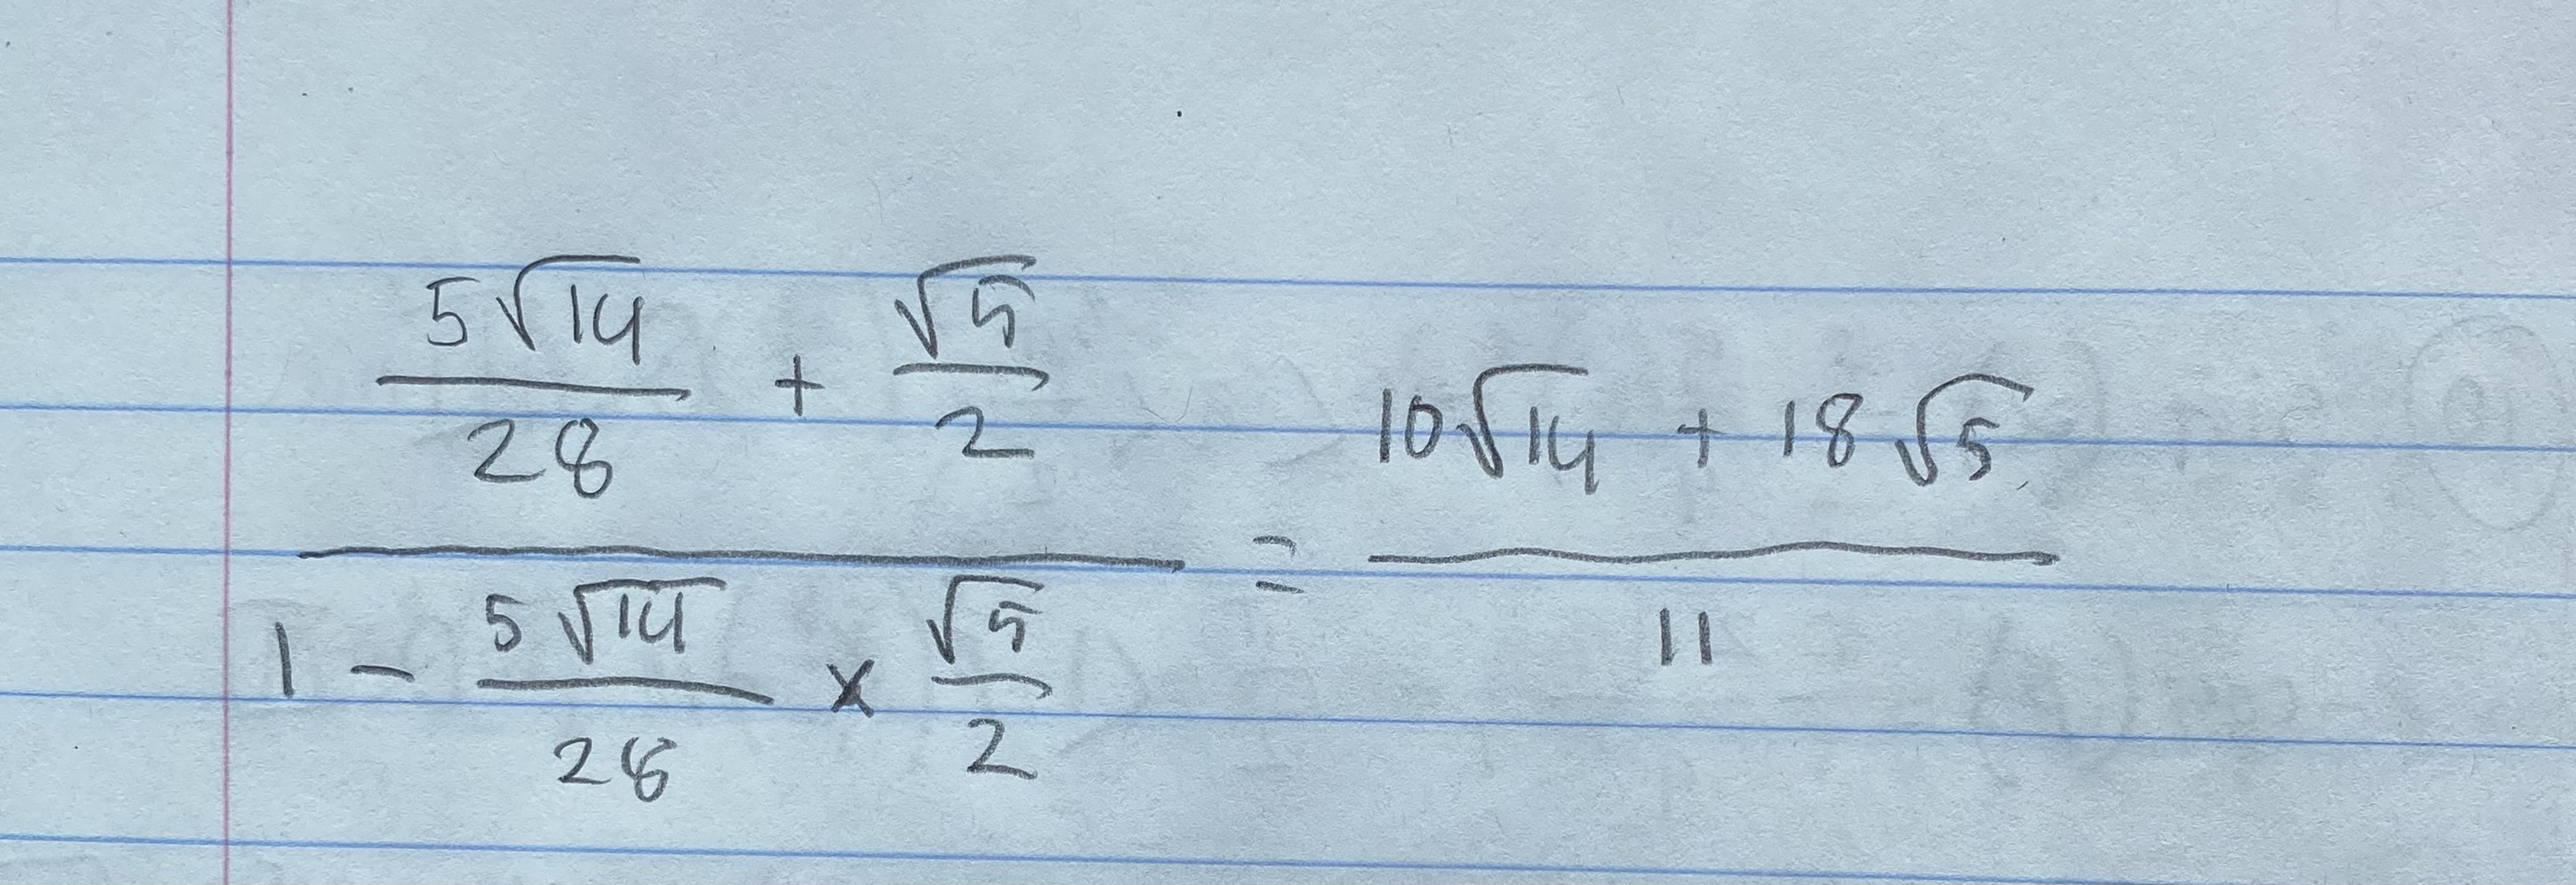 (5√14/28 + √5/2)/(1 - 5√14/28 × √5/2) = (10√14 + 18√5)/11